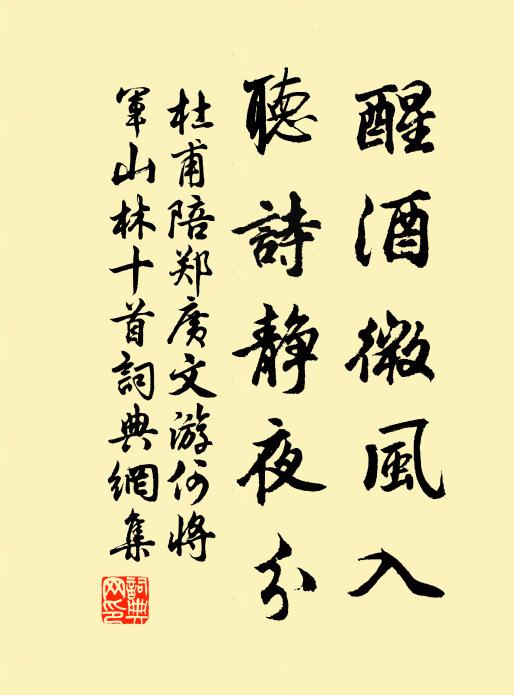 醒酒微風入
聽詩静夜分
杜甫陪郑廣文游何將
軍山林十首詞典網集
詞典
网印